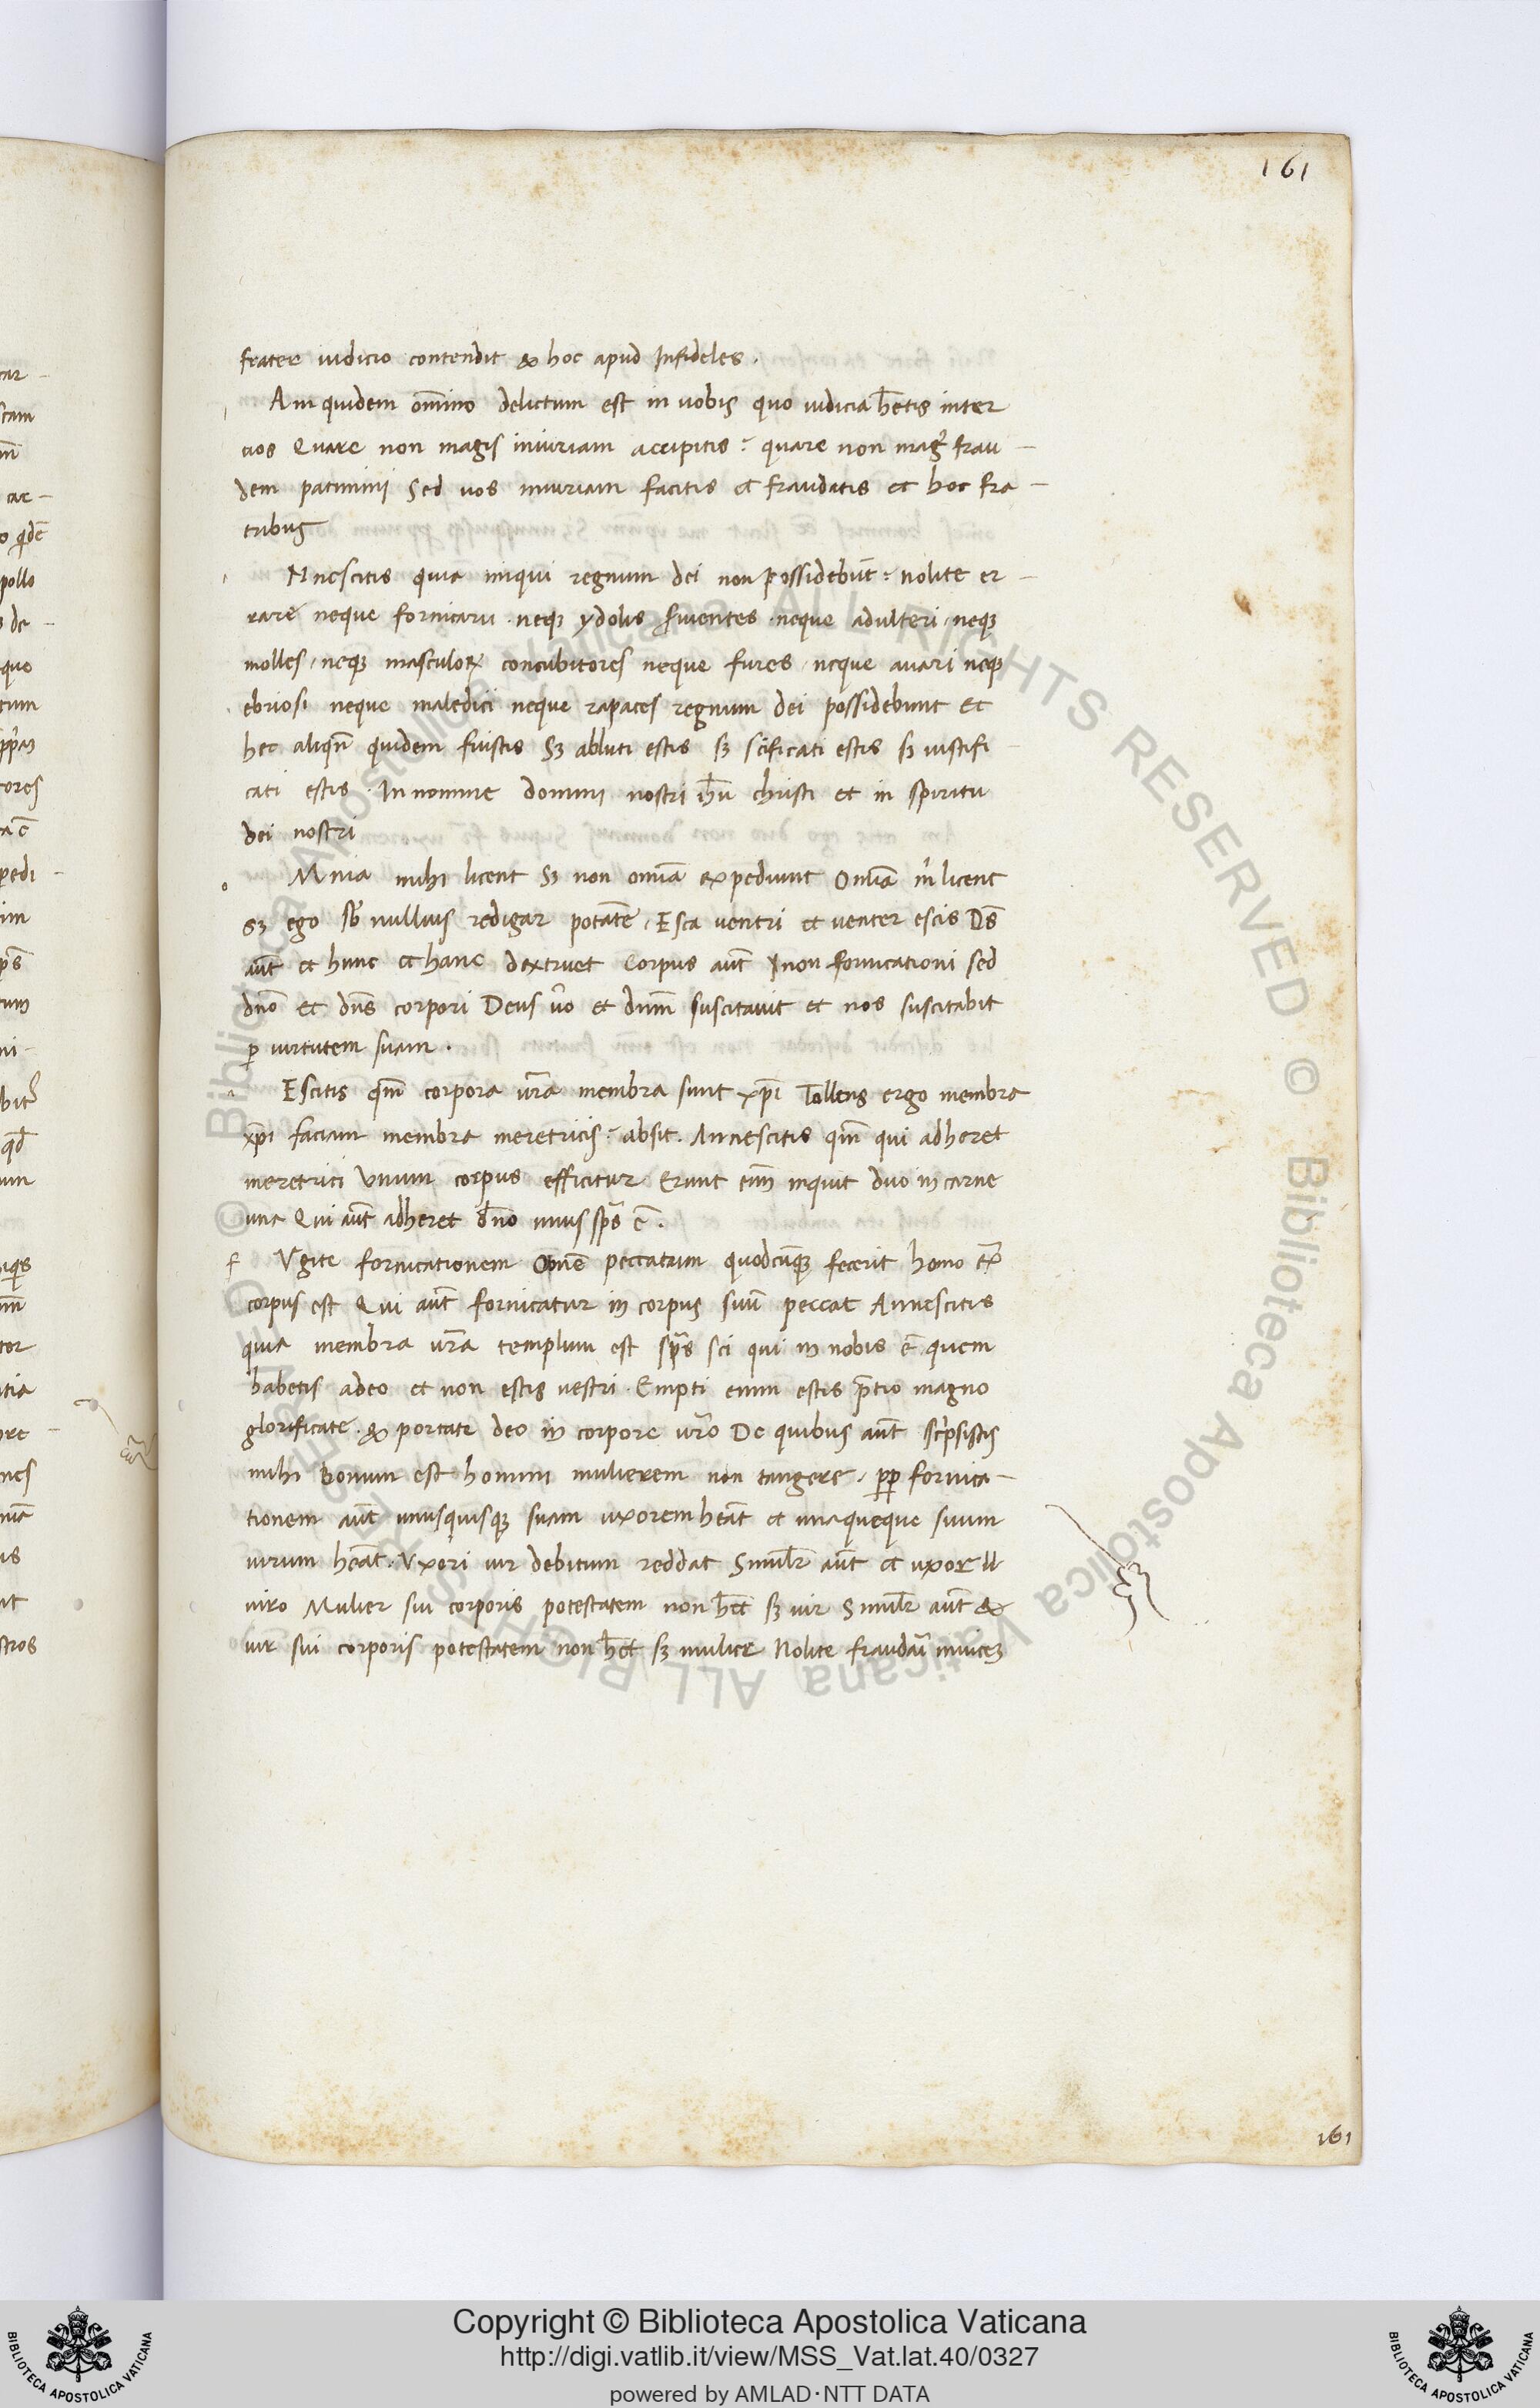 161
frater iudicio contendit & hoc apud Infideles .
Am quidem om̄ino delictum est in uobis quo iudicia h̄etis inter
uos Quare non magis iniuriam accipitis : quare non mag̃ frau -
dem patimini Sed uos iniuriam facitis et fraudatis et hoc fra -
tribus
N nescitis quia iniqui regnum dei non possidebūt : nolite er -
rare neque fornicarii . neqꝫ ydolis s̃uientes . neque adulteri . neqꝫ
molles . neqꝫ masculoꝝ concubitores neque fures . neque auari neqꝫ
ebriosi neque maledici neque rapaces regnum dei possidebunt et
hec aliqn̄ quidem fuistis Sꝫ abluti estis sꝫ scificati estis sꝫ iustifi -
cati estis . In nomine domini nostri ih̄u christi et in spiritu
dei nostri
o Mnia mihi licent Sꝫ non omīa expediunt Omīa m̄ licent
Sꝫ ego sb̄ nullius redigar potātē . Esca uentri et uenter escis Ds̄
aūt et hunc et hanc dextruet Corpus aūt non fornicationi sed
dn̄o et dn̄s corpori Deus ūo et dn̄m suscitauit et nos suscitabit
ꝑ uirtutem suam .
Escitis qm̄ corpora ūra membra sunt xp̄i Tollens ergo membra
xp̄i faciam membra meretricis : absit . An nescitis qm̄ qui adheret
meretrici Vnum corpus efficitur Erunt em̄ inquit duo in carne
una Qui aūt adheret d̄no unus sp̄s ē .
f Vgite fornicationem Omnē peccatum quodcūqꝫ fecerit homo ex̄
corpus est Qui aūt fornicatur in corpus suū peccat An nescitis
quia membra ūra templum est sp̄s sci qui in nobis ē quem
habetis adeo et non estis uestri . Empti enim estis p̄tio magno
glorificate . & portate deo in corpore ūro De quibus aūt sc̄psistis
mihi Bonum est homini mulierem non tangere . ꝓꝑ fornica -
tionem aūt unusquisqꝫ suam uxorem hēāt et unaqueque suum
uirum hēāt . Vxori uir debitum reddat Simil̄r aūt et uxor
uiro Mulier sui corporis potestatem non h̄et sꝫ uir Simil̄r aūt &
uir sui corporis potestatem non h̄et sꝫ mulier Nolite fraudaī inuicē
161
Copyright © Biblioteca Apostolica Vaticana
http://digi.vatlib.it/view/MSS_Vat.lat.40/0327
powered by AMLAD·NTT DATA